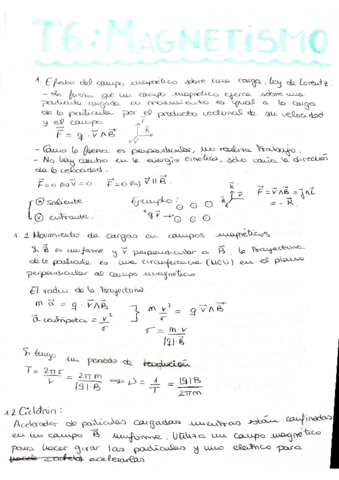 T6: MAGNETISMO
1. Efecto del campo magnético sobre una carga. Ley de Lorentz.
- La fuerza que un campo magnético ejerce sobre una
partícula cargada en movimiento es igual a la carga
de la partícula por el producto vectorial de su velocidad
y el campo
F⃗ = q · v⃗ ∧ B⃗
- Como la fuerza es perpendicular, no realiza trabajo.
- No hay cambio en la energía cinética, sólo varía la dirección
de la velocidad.
F⃗ = 0 v⃗ = 0. F⃗ = 0 v⃗ ∥ B⃗.
⊙ saliente
⊗ entrante.
Ejemplo:
F⃗ = v⃗ ∧ B⃗ =
= - k⃗.
1.1 Movimiento de cargas en campos magnéticos
Si B⃗ es uniforme y v⃗ perpendicular a B⃗, la trayectoria
de la partícula es una circunferencia (MCU) en el plano
perpendicular al campo magnético.
El radio de la trayectoria
m · a⃗ = q · v⃗ ∧ B⃗
a⃗ centrípeta = v²/r
} m v²/r = q · v⃗ ∧ B⃗
r = m·v / |q|·B
Si tengo un periodo de revolución
T = 2πr/v = 2πm/|q|·B ⟹ ν = 1/T = |q|B/2πm
1.2 Ciclotrón:
Acelerador de partículas cargadas mientras están confinadas
en un campo B⃗ uniforme. Utiliza un campo magnético
para hacer girar las partículas y uno eléctrico para
acelerarlas